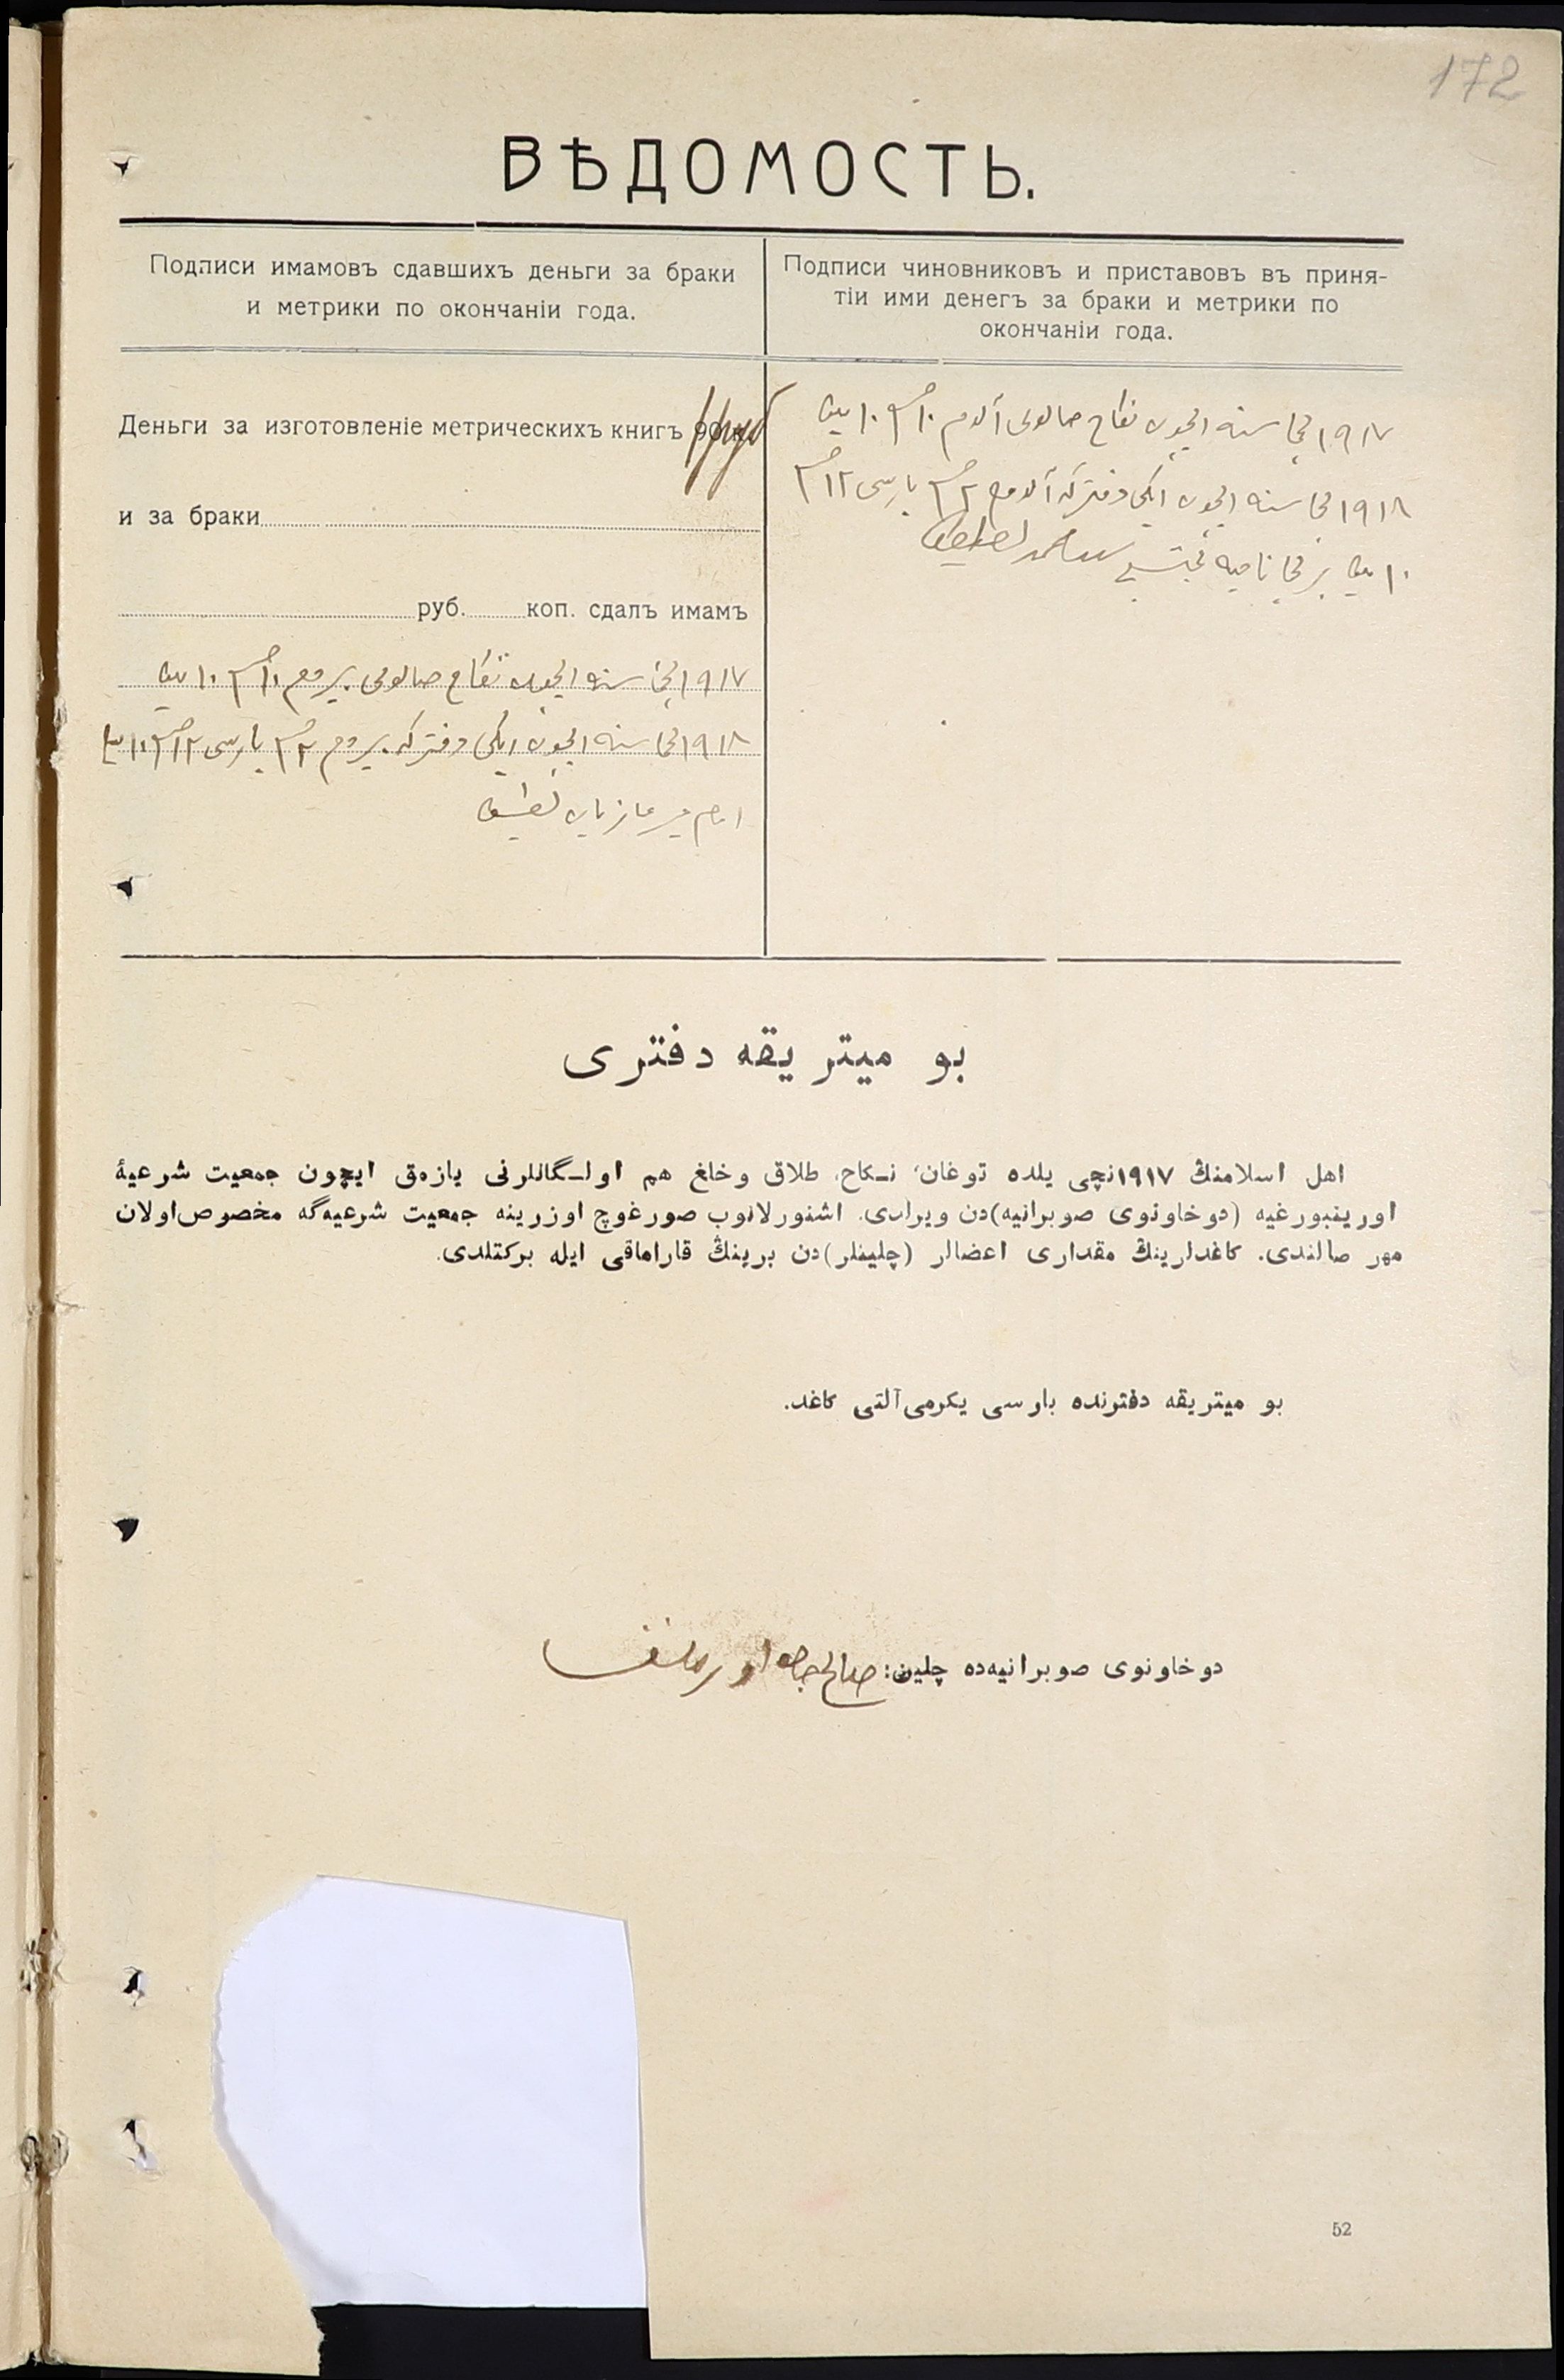 172
ВѢДОМОСТЬ.
Подписи имамовъ сдавшихъ деньги за браки
и метрики по окончаніи года.
Подписи чиновниковъ и приставовъ въ приня-
тіи ими денегъ за браки и метрики по
окончаніи года.
Деньги за изготовленіе метрическихъ книгъ
и за браки
руб. коп. сдалъ имамъ
١٩١٧ نچی سنه ایچون نکاح صالوغی بیردم
١٩١٨ نچی سنه ایچون ایکی دفترکه بیردم ٢ بارسی ١٢
امام
١٩١٧ نچی سنه ایچون نکاح صالوغی آلدم
١٩١٨ نچی سنه ایچون ایکی دفترکه آلدم ٢ بارسی ١٢
بو میتریقه دفتری
اهل اسلامنڭ ١٩١٧نچی یلده توغان، نـکاح، طلاق وخلغ هم اولـگانلرنی یازەق ایچون جمعیت شرعیۀ
اورینبورغیه (دوخاونوی صوبرانیه)دن ویرلدی. اشنورلانوب صورغوچ اوزرینه جمعیت شرعیەگه مخصوص اولان
مهر صالندی. کاغدلرینڭ مقداری اعضالر (چلینلر)دن برینڭ قاراماقی ایله برکتلدی.
بو میتریقه دفترنده بارسی یکرمی آلتی کاغد.
دوخاونوی صوبرانیەده چلین:
52